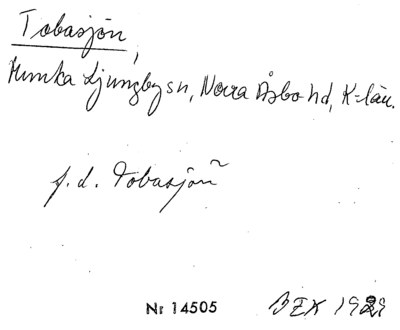 Tobasjön,
Munka Ljungby sn, Norra Åsbo hd, K-län.
f.d. Tobasjön
Nr 14505
BEK 1929